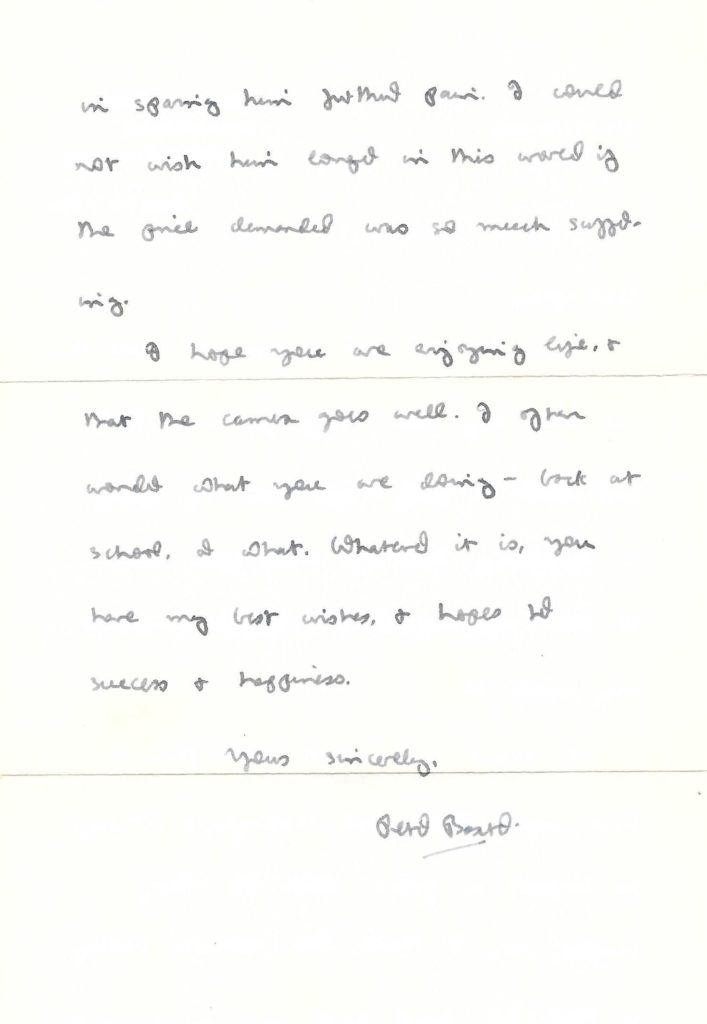 in sparing him further pain. I could
not wish him longer in this world if
the price demanded was so much suffer-
ing.
I hope you are enjoying life, &
that the career goes well. I often
wonder what you are doing - back at
school, or what. Whatever it is, you
have my best wishes, & hopes for
success & happiness.
Yours sincerely,
Peter Baxter.